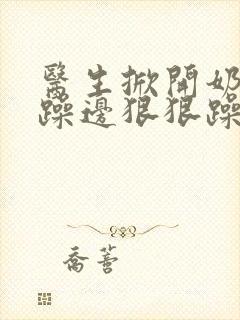 醫生掀開奶
躁邊狠狠躁
喬薈